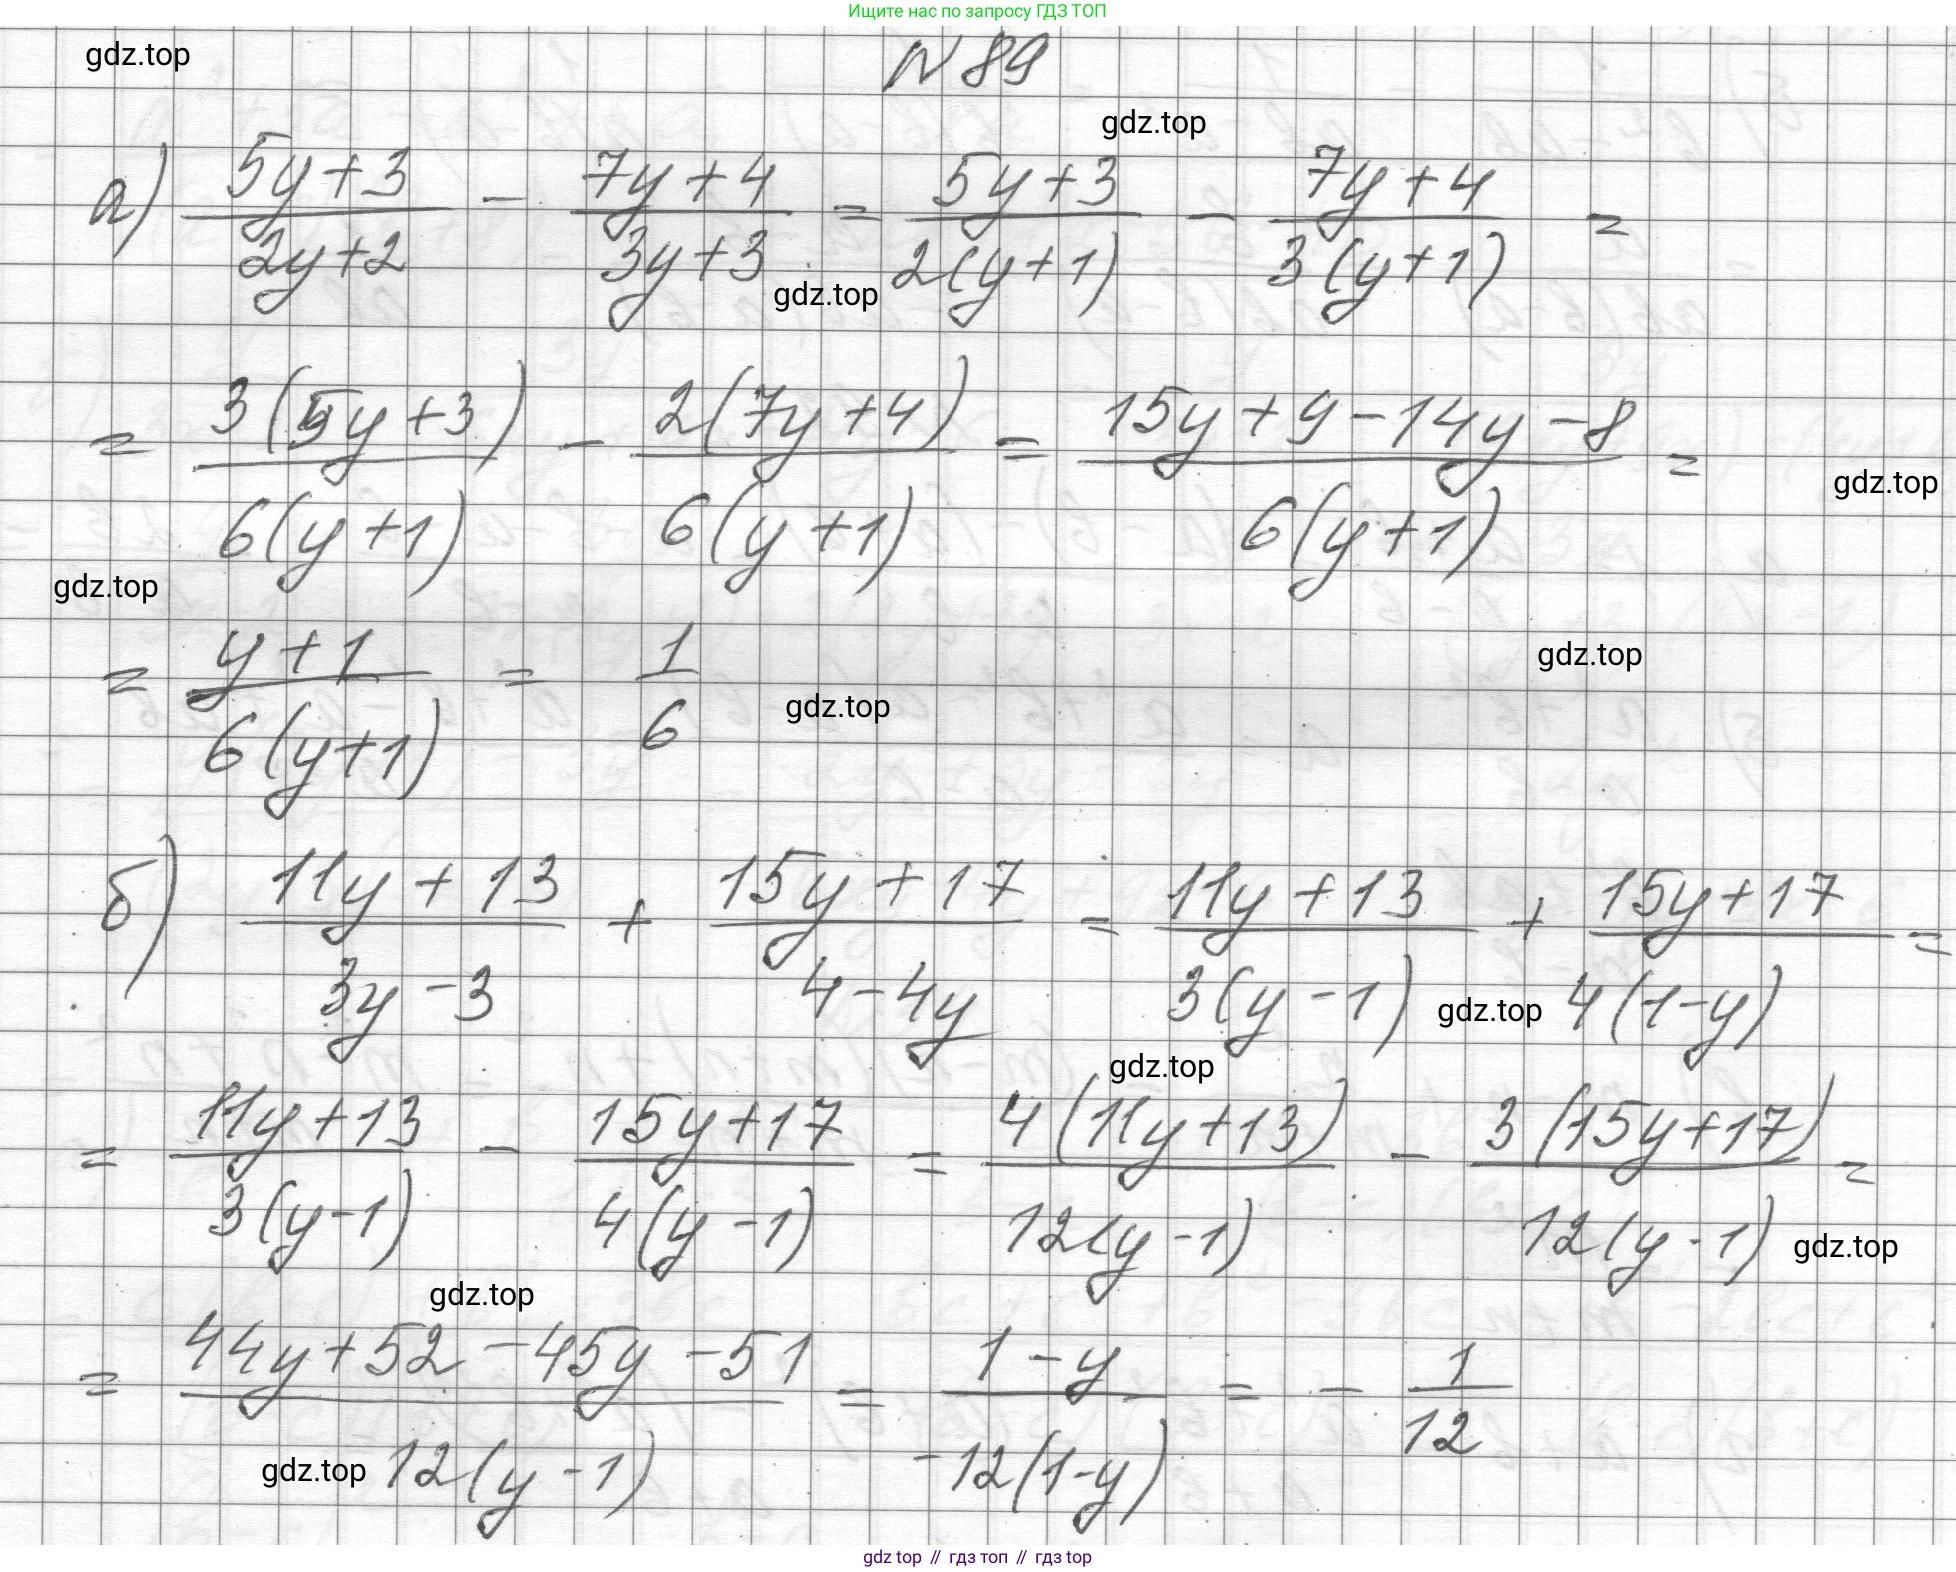 Ищите нас по запросу ГДЗ ТОП
gdz.top
N 89
gdz.top
а) (5y+3)/(2y+2) - (7y+4)/(3y+3) = (5y+3)/(2(y+1)) - (7y+4)/(3(y+1)) =
gdz.top
= (3(5y+3))/(6(y+1)) - (2(7y+4))/(6(y+1)) = (15y+9-14y-8)/(6(y+1)) =
gdz.top
gdz.top
gdz.top
= (y+1)/(6(y+1)) = 1/6
gdz.top
б) (11y+13)/(3y-3) + (15y+17)/(4-4y) = (11y+13)/(3(y-1)) + (15y+17)/(4(1-y)) =
gdz.top
gdz.top
= (11y+13)/(3(y-1)) - (15y+17)/(4(y-1)) = (4(11y+13))/(12(y-1)) - (3(15y+17))/(12(y-1)) =
gdz.top
gdz.top
= (44y+52-45y-51)/(12(y-1)) = (1-y)/(-12(1-y)) = - 1/12
gdz.top
gdz top // гдз топ // гдз top